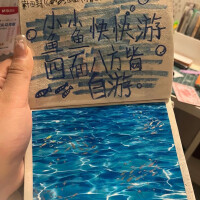 小小快快游
鱼鱼
四面八方皆
自游。